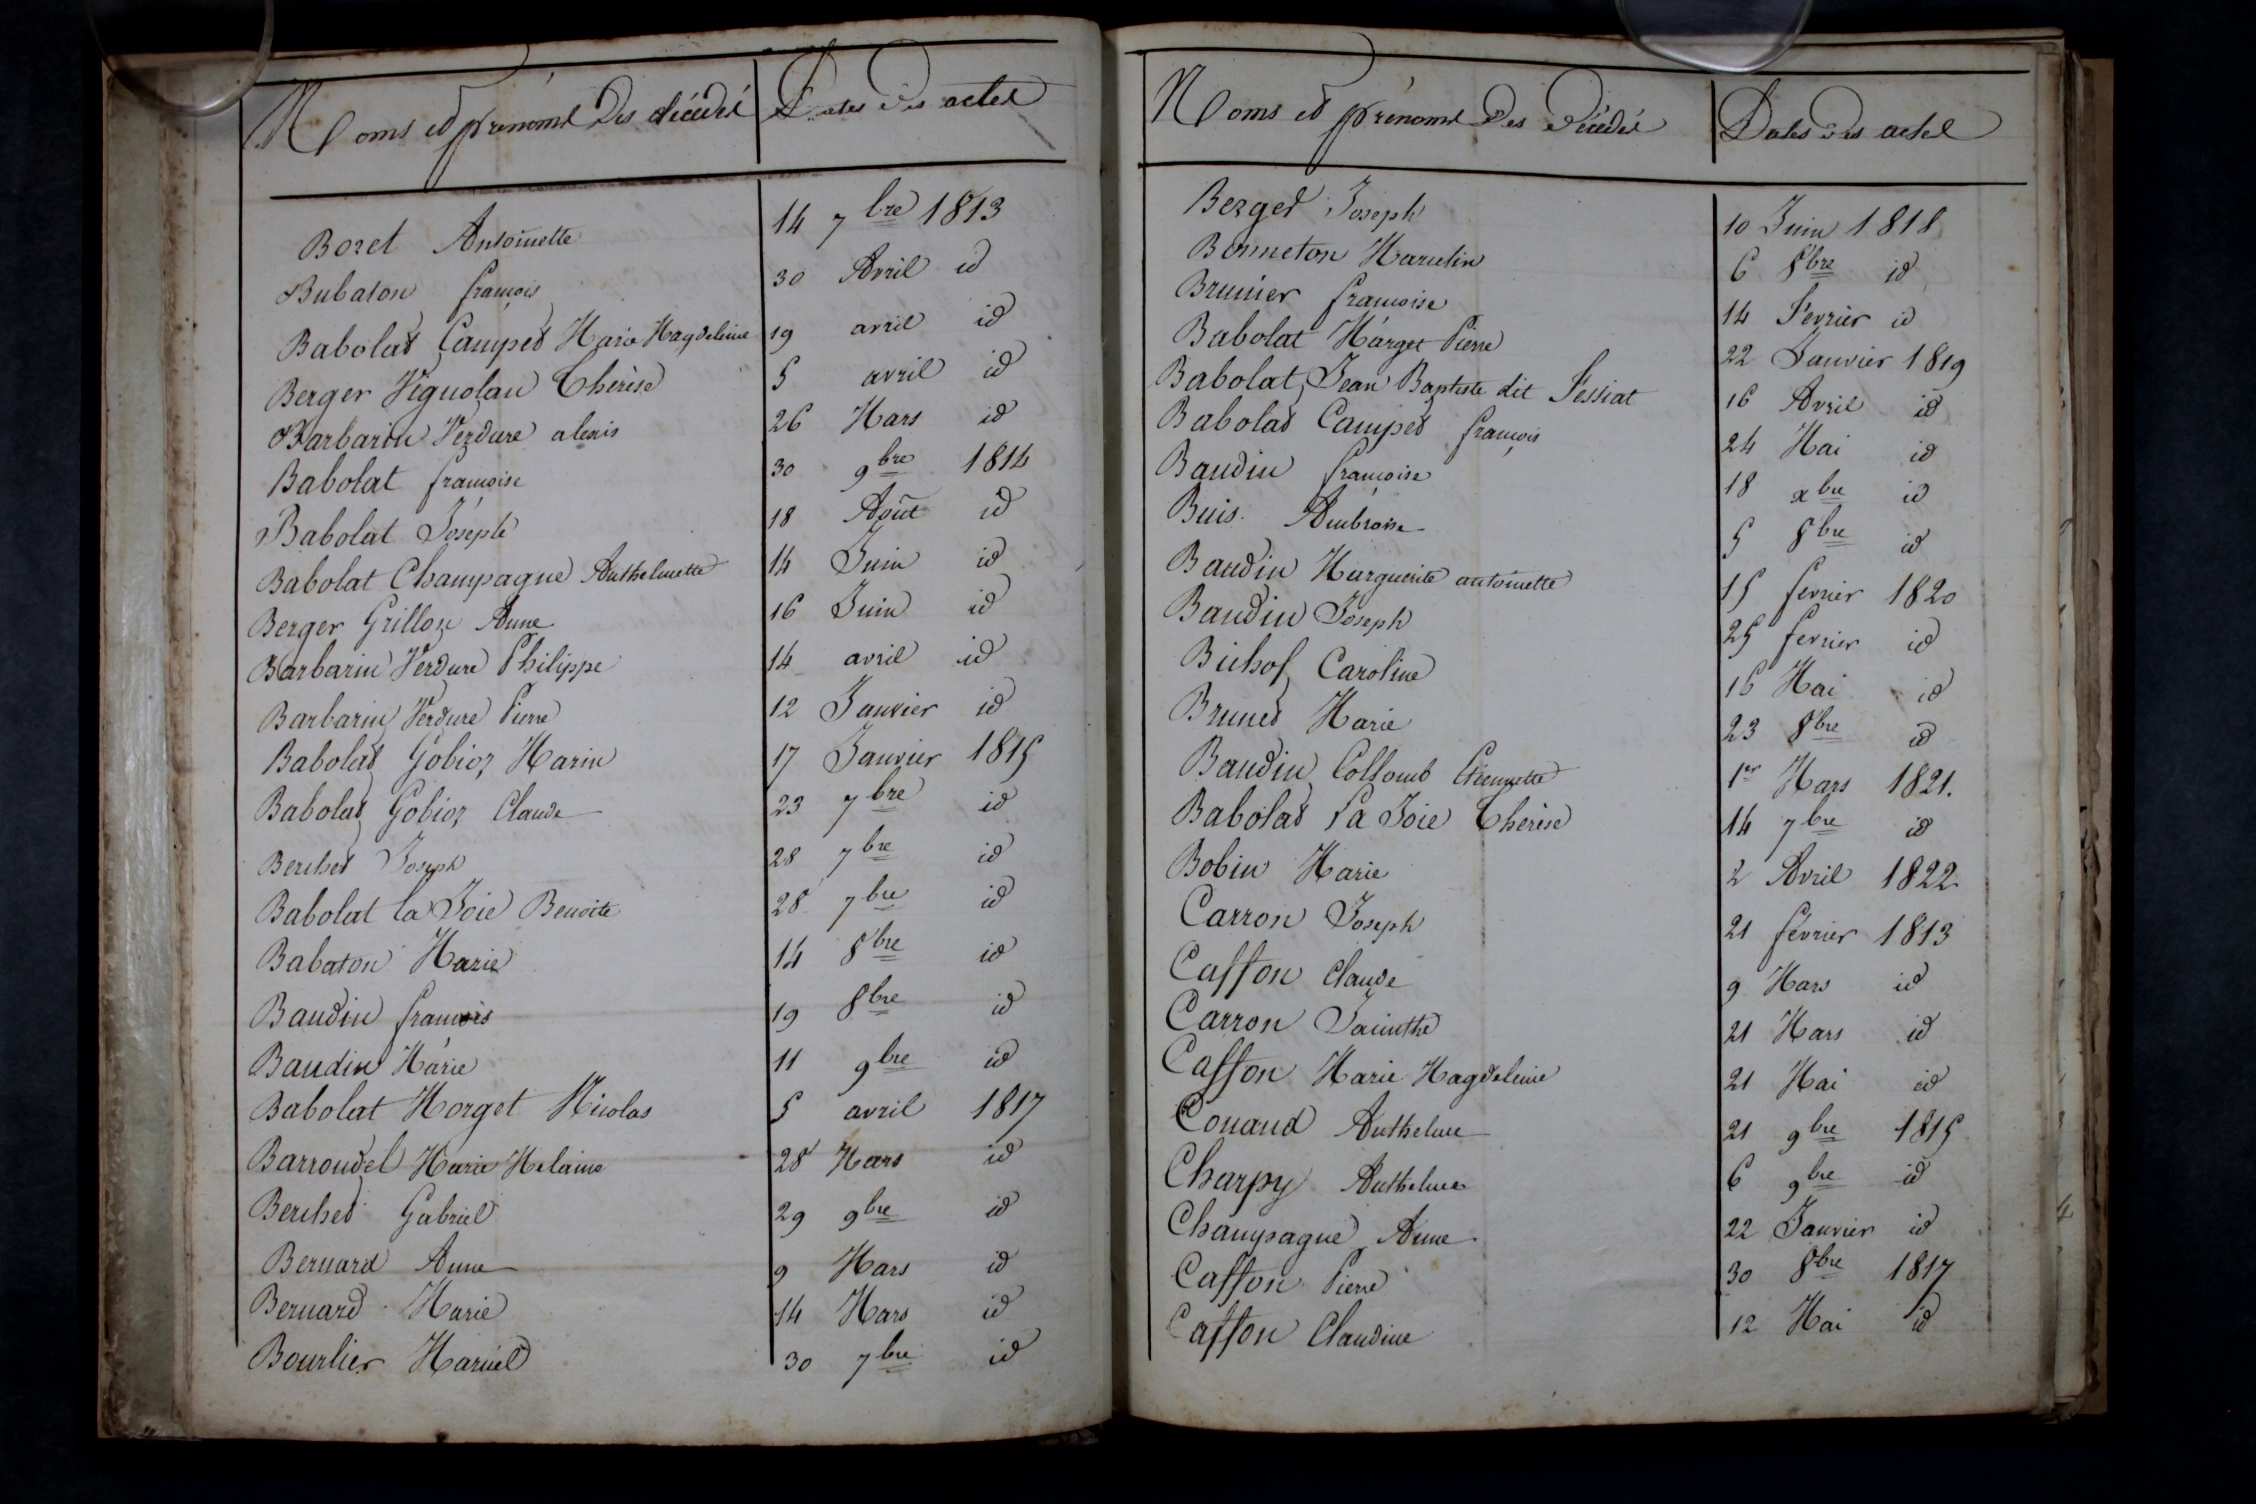 Noms et prénoms des décédés Dates des actes
Bozet Antoinette 14 7bre 1813
Bubaton françois 30 Avril id
Babolat Campet Marie Magdeleine 19 avril id
Berger Vignolan Thérèse 5 avril id
Barbarin Verdure alexis 26 Mars id
Babolat françoise 30 9bre 1814
Babolat Joseph 18 Août id
Babolat Champagne Anthelmette 14 Juin id
Berger Grillon Anne 16 Juin id
Barbarin Verdure Philippe 14 avril id
Barbarin Verdure Pierre 12 Janvier id
Babolat Gobioz Marin 17 Janvier 1815
Babolat Gobioz Claude 23 7bre id
Berchet Joseph 28 7bre id
Babolat la Joie Benoite 28 7bre id
Babaton Marie 14 8bre id
Baudin françois 19 8bre id
Baudin Marie 11 9bre id
Babolat Morget Nicolas 5 avril 1817
Barroudel Marie Melaine 28 Mars id
Berchet Gabriel 29 9bre id
Bernard Anne 9 Mars id
Bernard Marie 14 Mars id
Bourlier Marie 30 7bre id
Noms et prénoms des décédés Dates des actes
Berget Joseph 10 Juin 1818
Bonneton Marcelin 6 8bre id
Brunier françoise 14 Fevrier id
Babolat Marget Pierre 22 Janvier 1819
Babolat Jean Baptiste dit Fessiat 16 Avril id
Babolat Campet françois 24 Mai id
Baudin françoise 18 xbre id
Buis Ambroise 5 8bre id
Baudin Marguerite antoinette 15 fevrier 1820
Baudin Joseph 25 fevrier id
Bichof Caroline 16 Mai id
Brunet Marie 23 8bre id
Baudin Collomb Etiennette 1er Mars 1821.
Babolat La Joie Thérèse 14 7bre id
Bobin Marie 2 Avril 1822.
Carron Joseph 21 février 1813
Casson Claude 9 Mars id
Carron Jacinthe 21 Mars id
Casson Marie Magdeleine 21 Mai id
Conand Anthelme 21 9bre 1815
Charpy Anthelme 6 9bre id
Champagne Anne 22 Janvier id
Casson Pierre 30 8bre 1817
Casson Claudine 12 Mai id